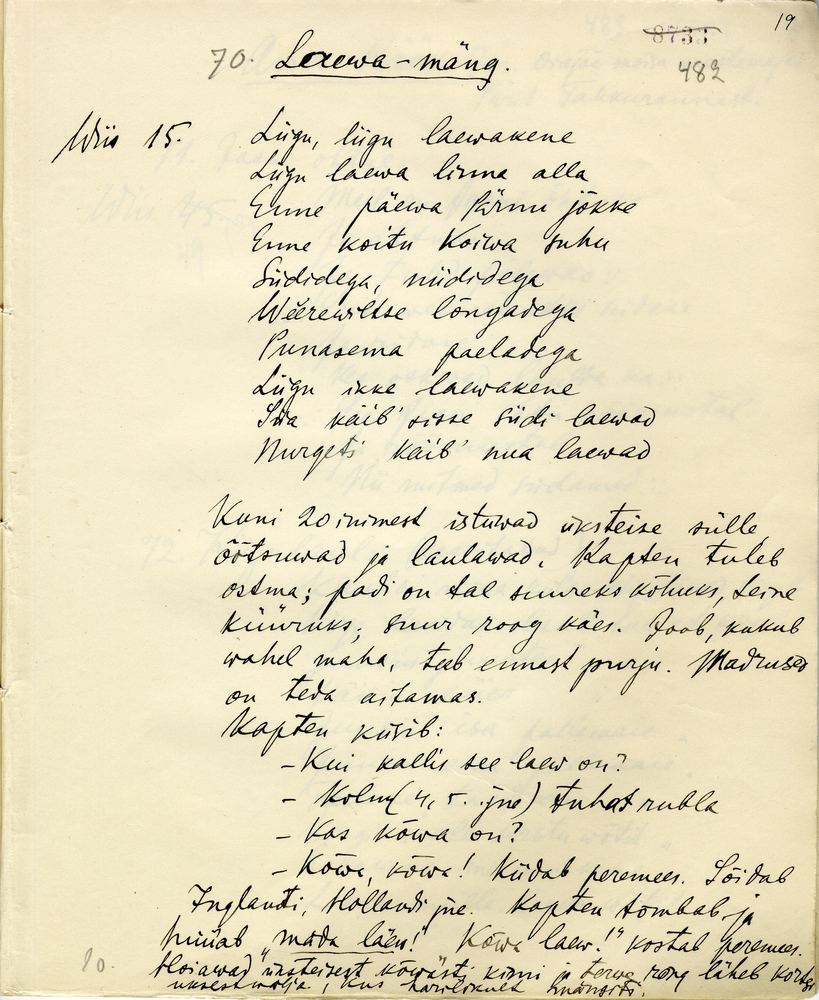 19
8733
70. Laewa-mäng.
482
Wiis 15.
Liigu, liigu laewakene
Liigu laewa linna alla
Enne päewa Pärnu jõkke
Enne koitu Koiwa suhu
Siididega, niididega
Wéerewiltse lõngadega
Punasema paeladega
Liigu ikke laewakene
Siia käib' sisse siidi laewad
Nurgeti käib' nua laewad
Kuni 20 inimest istuwad üksteise sülle,
õõtsuwad ja laulawad. Kapten tuleb
ostma; padi on tal suureks kõhuks, teine
küüruks; suur roog käes. Joob, kukub
wahel maha, teeb ennast purju. Madrused
on teda aitamas.
Kapten küsib:
- Kui kallis see laew on?
- Kolm (4, 5. jne) tuhat rubla
- Kas kõwa on?
- Kõwa, kõwa! Kiidab peremees. Sõidab
Inglanti, Hollandi jne. Kapten tõmbab ja
hüüab "mäda läew!" "Kõwa laew!" kostab peremees.
Hoiawad üksteisest kõwasti kinni ja terwe rong läheb
uksest wälja, kus harilikult mängiti.
10.